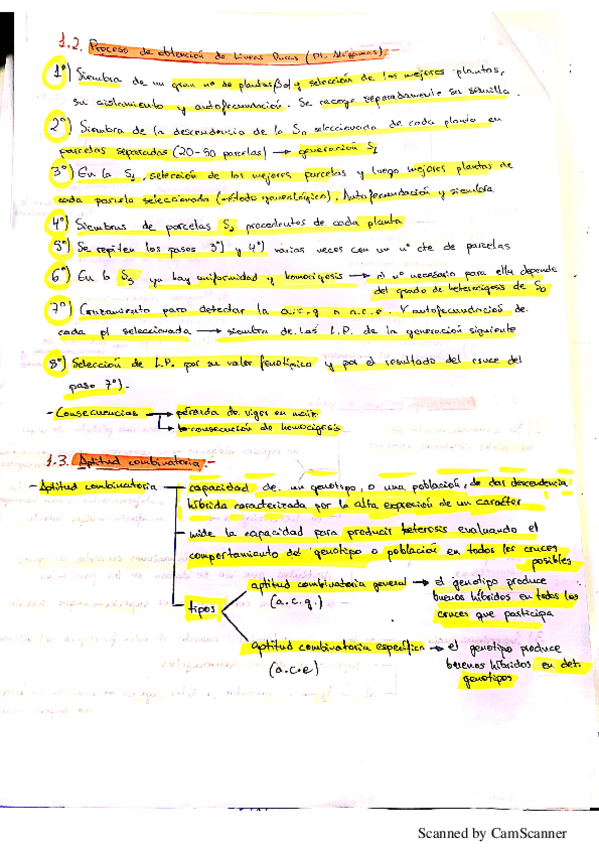 1.2. Proceso de obtención de Líneas Puras (Pl. Alógamas).-
1º) Siembra de un gran nº de plantas (S0) y selección de las mejores plantas,
su aislamiento y autofecundación. Se recoge separadamente su semilla.
2º) Siembra de la descendencia de la S0 seleccionada de cada planta en
parcelas separadas (20-50 parcelas) → generación S1
3º) En la S1, selección de las mejores parcelas y luego mejores plantas de
cada parcela seleccionada (método genealógico), Autofecundación y siembra
4º) Siembras de parcelas S2 procedentes de cada planta
5º) Se repiten los pasos 3º) y 4º) varias veces con un nº cte de parcelas
6º) En la S5 ya hay uniformidad y homocigosis → el nº necesario para ella depende
del grado de heterocigosis de S0
7º) Cruzamiento para detectar la a.c.g o a.c.e. Y autofecundación de
cada pl seleccionada → siembra de las L.P. de la generación siguiente
8º) Selección de L.P. por su valor fenotípico y por el resultado del cruce del
paso 7º).
- Consecuencias → pérdida de vigor en maíz
→ consecución de homocigosis
1.3. Aptitud combinatoria.-
- Aptitud combinatoria — capacidad de un genotipo, o una población, de dar descendencia
híbrida caracterizada por la alta expresión de un carácter
— mide la capacidad para producir heterosis evaluando el
comportamiento del genotipo o población en todos los cruces
posibles
— tipos
aptitud combinatoria general → el genotipo produce
(a.c.g.) buenos híbridos en todos los
cruces que participa
aptitud combinatoria específica → el genotipo produce
(a.c.e) buenos híbridos en det.
genotipos
Scanned by CamScanner